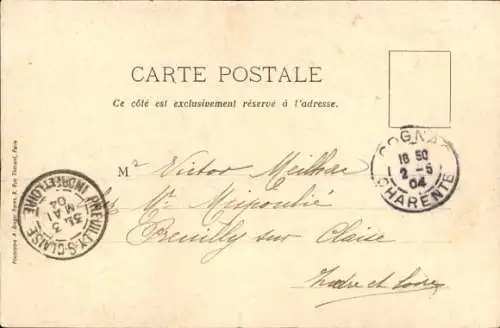 CARTE POSTALE
Ce côté est exclusivement réservé à l'adresse.
COGNAC
18 50
2 - 5
04
CHARENTE
Mr Victor Meilhac
Mr
Preuilly sur Claise
Indre et Loire
PREUILLY-S-CLAISE
3
MAI
04
INDRE ET LOIRE